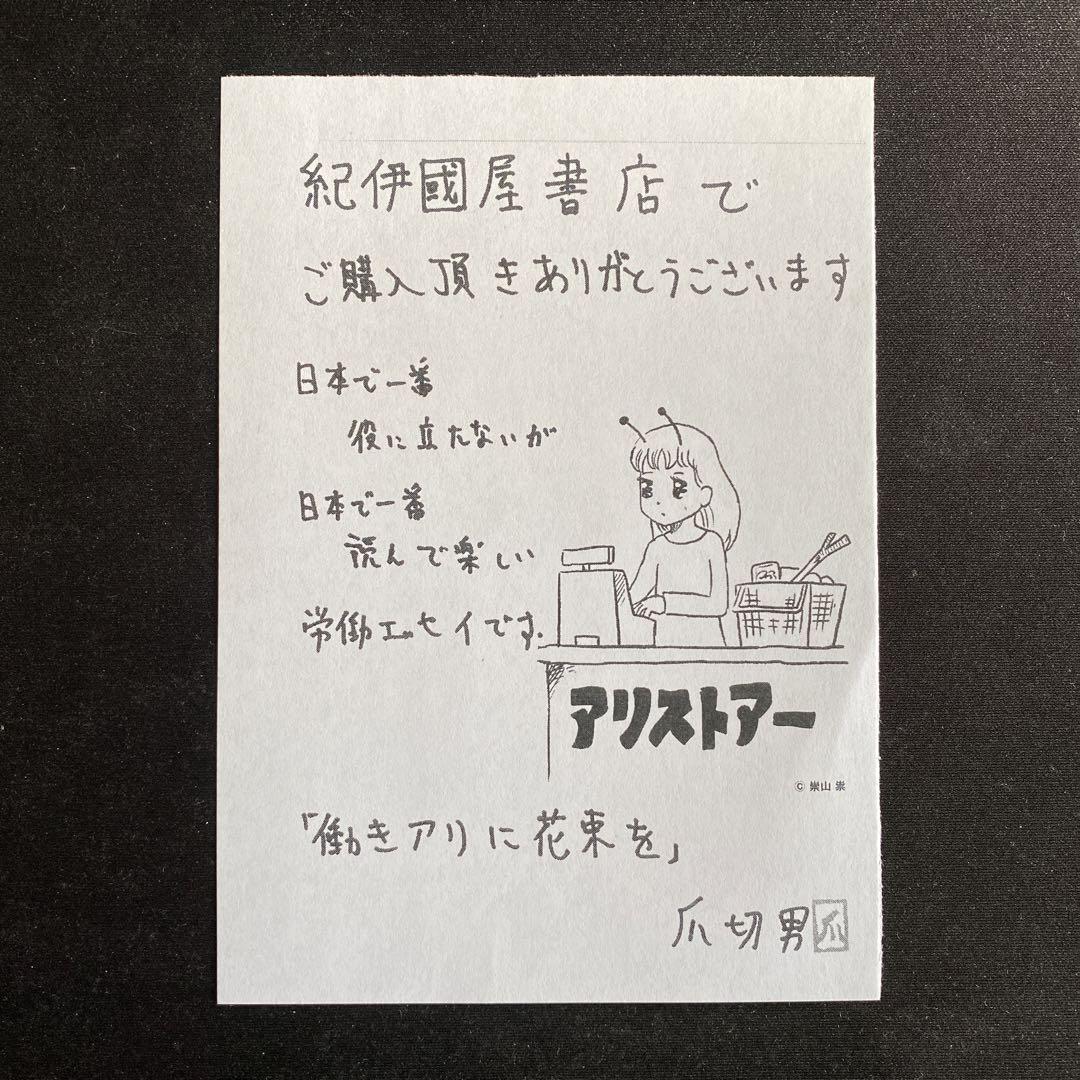 紀伊國屋書店で
ご購入頂きありがとうございます
日本で一番
役に立たないが
日本で一番
読んで楽しい
労働エッセイです.
アリストアー
© 崇山 祟
「働きアリに花束を」
爪切男 爪